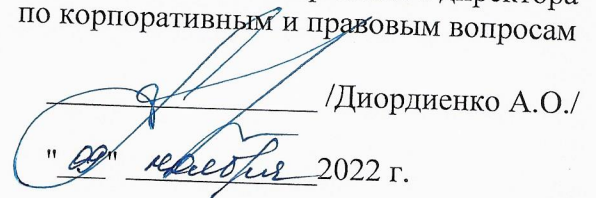 директора
по корпоративным и правовым вопросам
/Диордиенко А.О./
"09" ноября 2022 г.